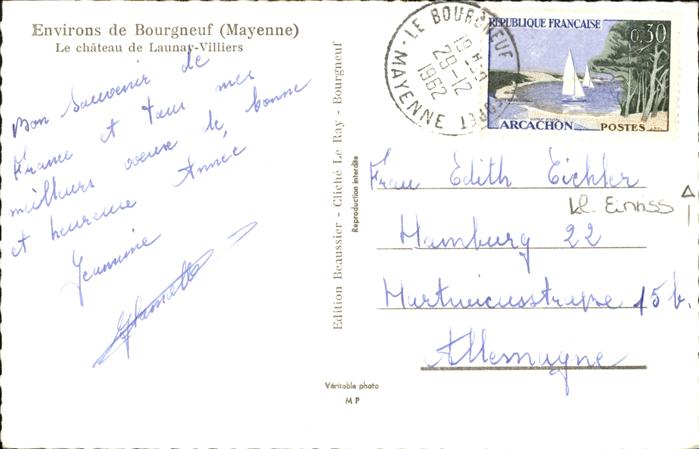 Environs de Bourgneuf (Mayenne)
Le château de Launay-Villiers
Bon souvenir de
France et tous mes
meilleurs voeux de bonne
et heureuse Année
Jeannine
Edition Beaussier - Cliché Le Ray - Bourgneuf
Reproduction interdite
Véritable photo
M P
LE BOURGNEUF
29-12
1962
MAYENNE
REPUBLIQUE FRANÇAISE
0,30
ARCACHON
POSTES
Frau Edith Eichler
Hamburg 22
15 b.
Allemagne